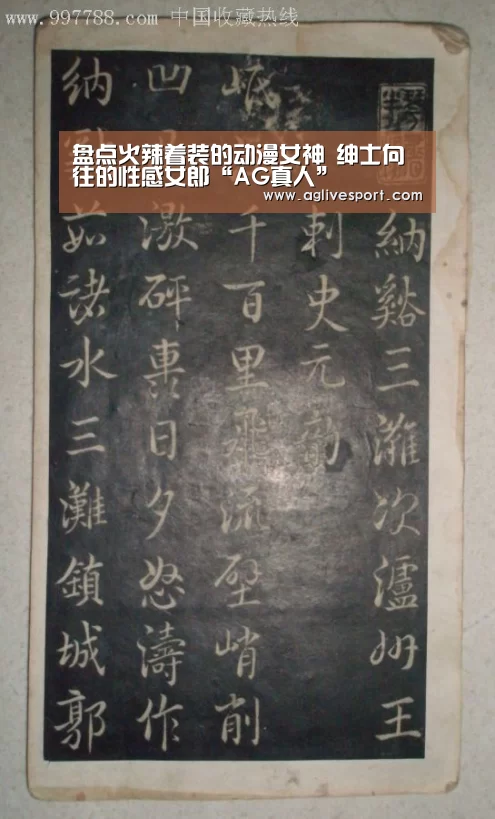 www.997788.com 中国收藏热线
盘点火辣着装的动漫女神 绅士向
往的性感女郎“AG真人”
www.aglivesport.com
納谿三灘次瀘州王
刺史元
岷千百里飛流壁峭削
凹激砰轟日夕怒濤作
納茹諸水三灘鎮城郭